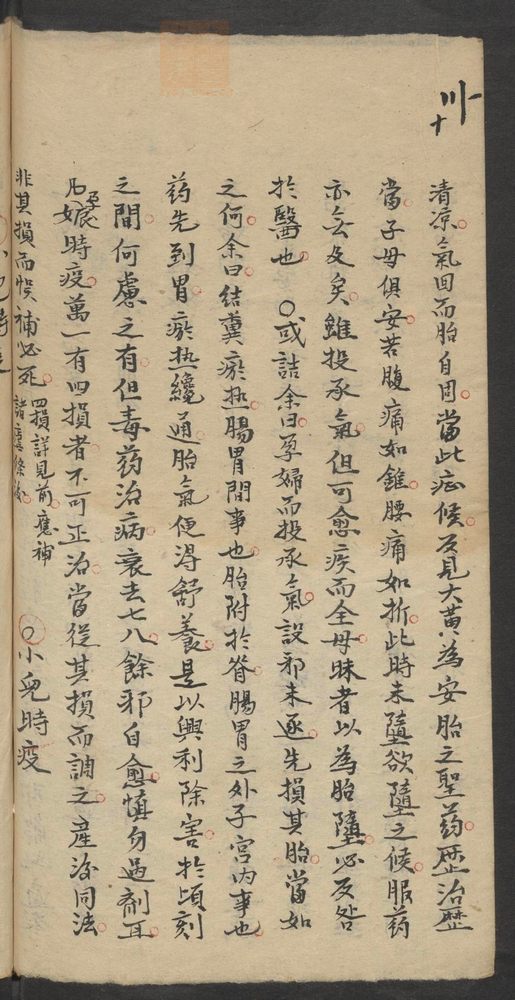 卅
十
清凉。氣回而胎自固。當此症候。反見大黃為安胎之聖药。歷治歷
當。子母俱安。若腹痛如錐。腰痛如折。此時未墮欲墮之候。服药
亦無及矣。雖投承氣。但可愈疾而全母。昧者以為胎墮。必反咎
於醫也。〇或詰余曰。孕婦而投承氣。設邪未逐。先損其胎。當如
之何。余曰。結糞瘀热。腸胃間事也。胎附於脊。腸胃之外。子宮內事也。
药先到胃。瘀热纔通。胎氣便淂舒養。是以興利除害於頃刻
之間。何慮之有。但毒药治病。衰去七八。餘邪自愈。慎勿過剤耳。
凡孕娠時疫。萬一有四損者。不可正治。當從其損而調之。產後同法。
非其損而悞補必死。四損詳見前應補諸虛條後。〇小兒時疫